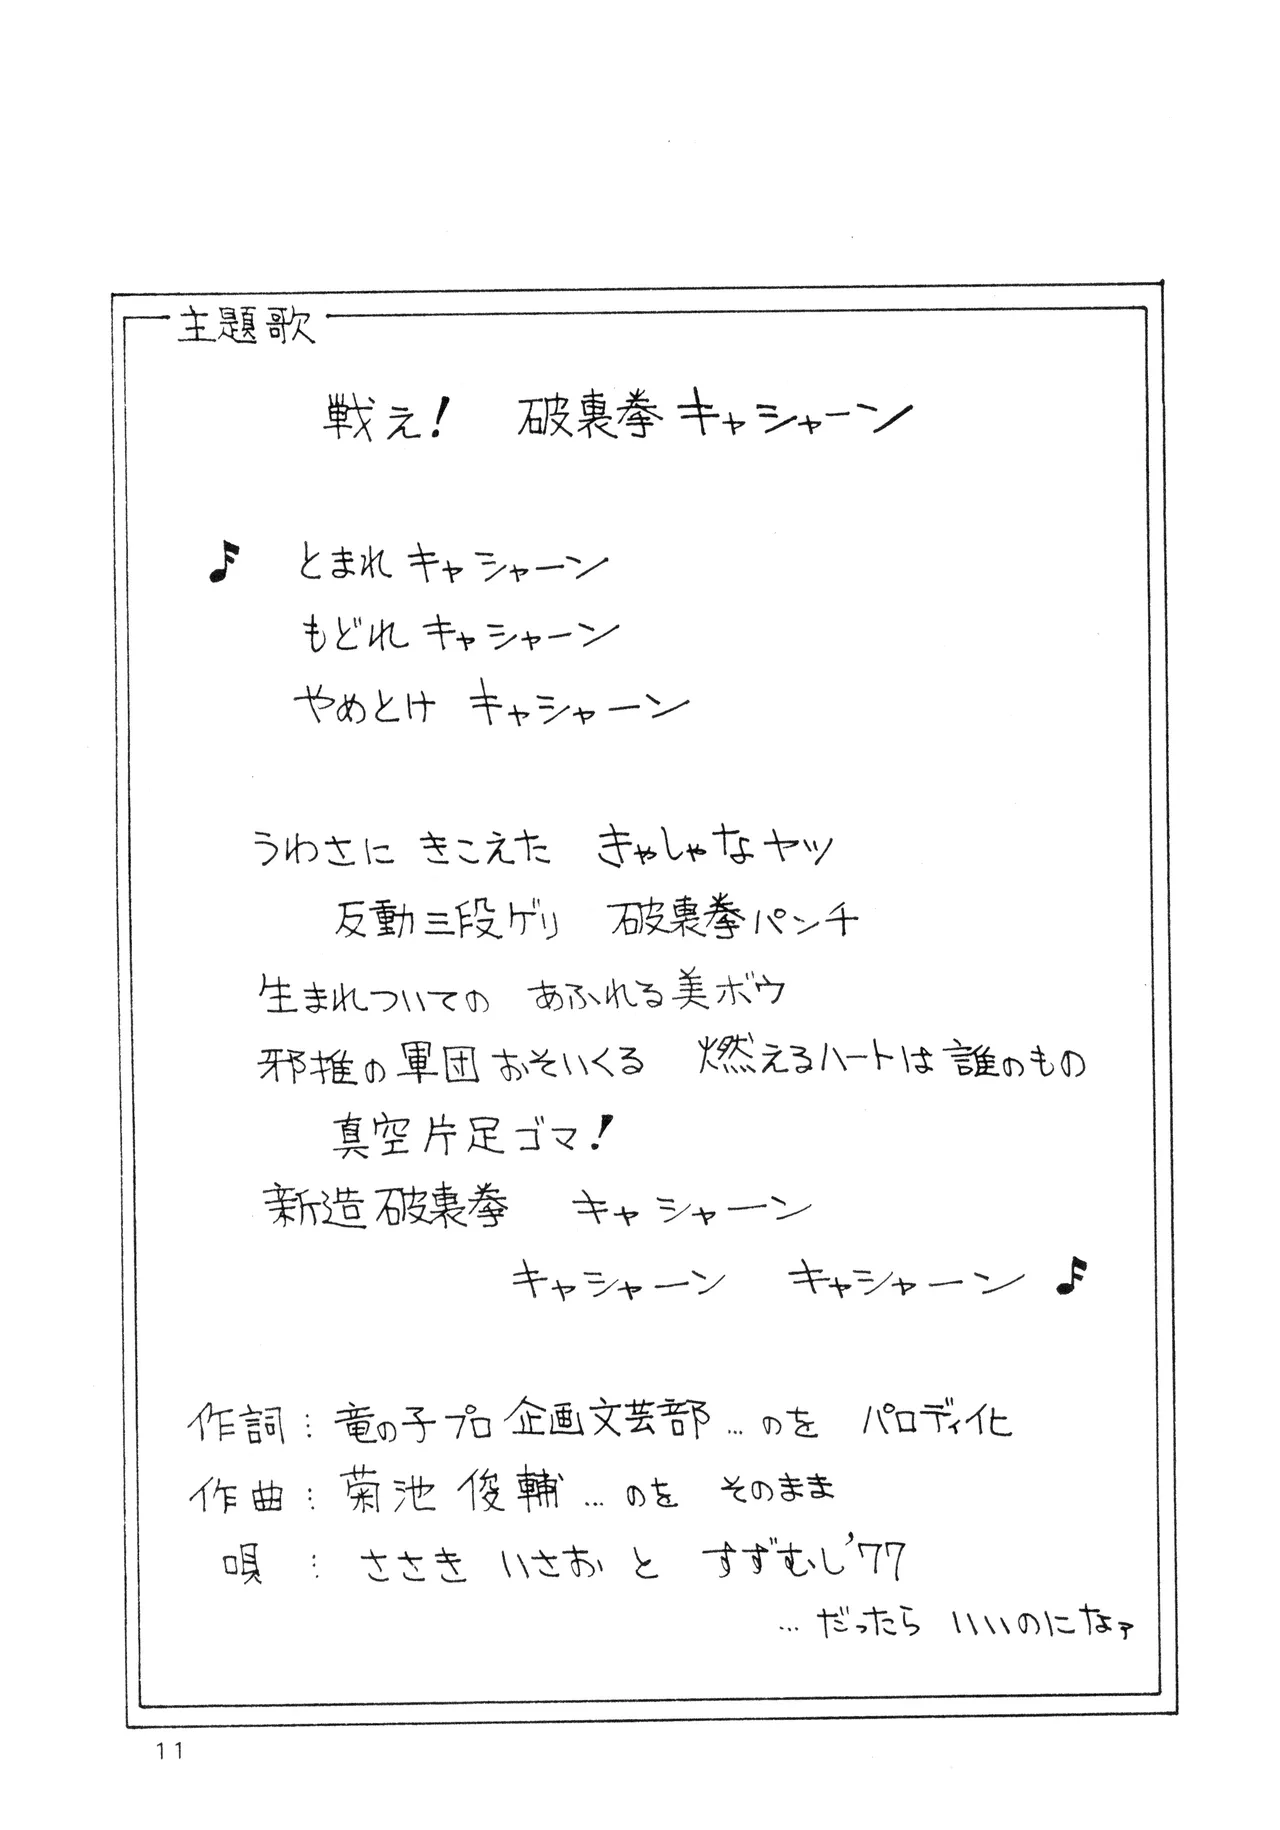 主題歌
戦え！　破裏拳キャシャーン
とまれ キャシャーン
もどれ キャシャーン
やめとけ キャシャーン
うわさに きこえた きゃしゃなヤツ
反動三段ゲリ 破裏拳パンチ
生まれついての あふれる美ボウ
邪推の軍団おそいくる 燃えるハートは誰のもの
真空片足ゴマ！
新造破裏拳 キャシャーン
キャシャーン キャシャーン
作詞：竜の子プロ企画文芸部…のを パロディ化
作曲：菊池俊輔…のを そのまま
唄：ささきいさおと すずむし'77
…だったら いいのになァ
11